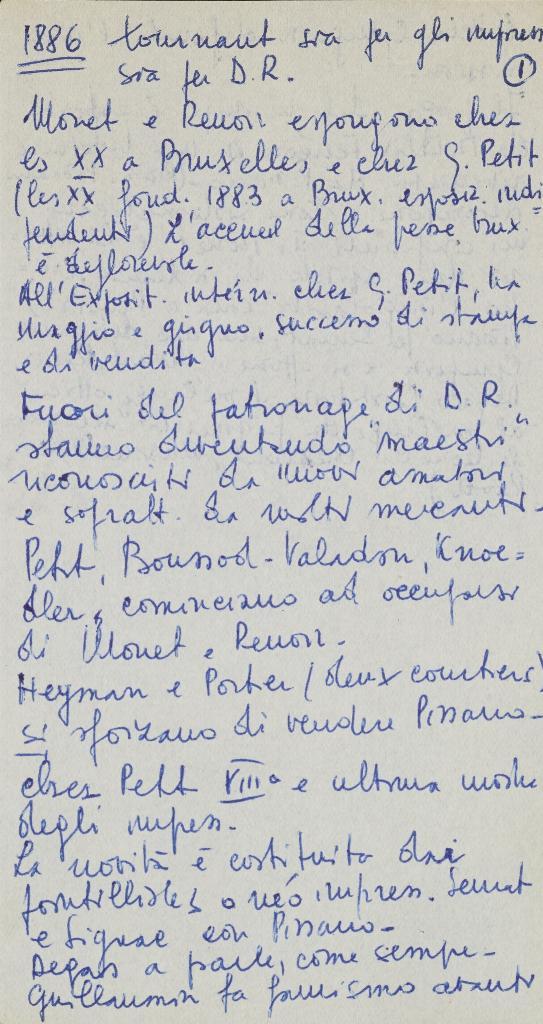 1886 tournant sia per gli impress
sia per D.R. 1
Monet e Renoir espongono chez
les XX a Bruxelles, e chez G. Petit
(les XX fond. 1883 a Brux. esposiz. indi=
pendenti) L'accueil della presse brux.
è deplorevole.
All'Exposit. intern. chez G. Petit, tra
maggio e giugno, successo di stampa
e di vendita
Fuori del patronage di D.R.
stanno diventando "maestri"
riconosciuti da nuovi amatori
e sopratt. da molti mercanti.
Petit, Boussod-Valadon, Knoe=
dler, cominciano ad occuparsi
di Monet e Renoir.
Heyman e Portier (deux courtiers)
si sforzano di vendere Pissarro.
chez Petit VIIIa e ultima mostra
degli impress.
La novità è costituita dai
pointillistes o néo impress. Seurat
e Signac con Pissarro.
Degas a parte, come sempre.
Guillaumin fa